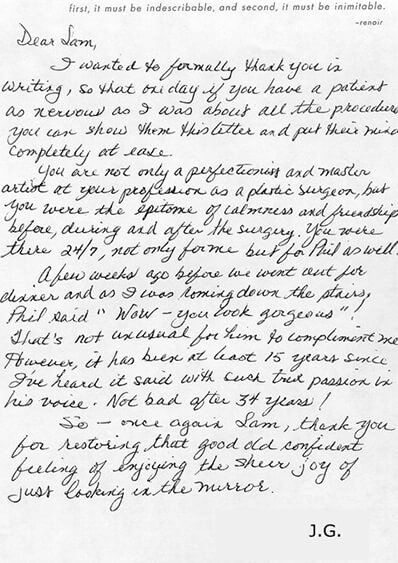 first, it must be indescribable, and second, it must be inimitable.
–renoir
Dear Sam,
I wanted to formally thank you in
writing, so that one day if you have a patient
as nervous as I was about all the procedures
you can show them this letter and put their mind
completely at ease.
You are not only a perfectionist and master
artist at your profession as a plastic surgeon, but
you were the epitome of calmness and friendship
before, during and after the surgery. You were
there 24/7, not only for me but for Phil as well.
A few weeks ago before we went out for
dinner and as I was coming down the stairs,
Phil said "Wow – you look gorgeous"!
That's not unusual for him to compliment me
However, it has been at least 15 years since
I've heard it said with such true passion in
his voice. Not bad after 34 years!
So – once again Sam, thank you
for restoring that good old confident
feeling of enjoying the sheer joy of
just looking in the mirror.
J.G.